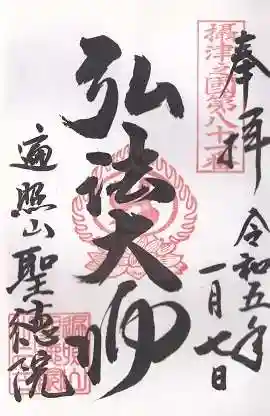 奉拝
攝津之國第八十一番
令和五年
一月七日
弘法大師
遍照山 聖徳院